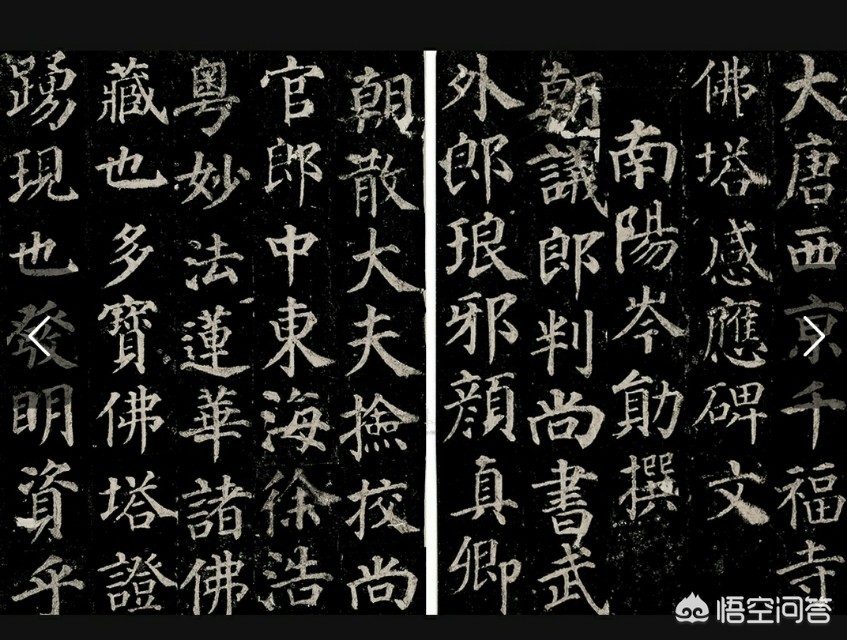 大唐西京千福寺
佛塔感應碑文
南陽岑勛撰
朝議郎判尚書武
外郎琅邪顏真卿
朝散大夫撿挍尚
官郎中東海徐浩
粵妙法蓮華諸佛
藏也多寶佛塔證
踴現也發明資乎
悟空问答